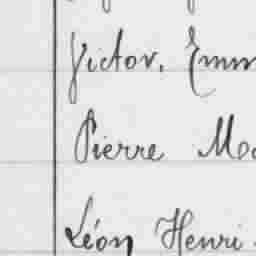 Victor, Emm
Pierre Ma
Léon Henri